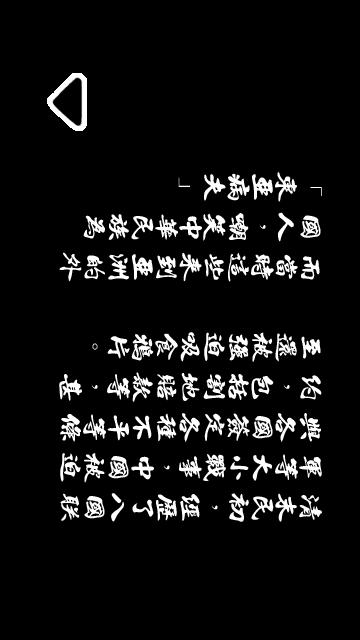 清末民初，經歷了八國联
軍等大小戰事，中國被迫
與各國簽定各種不平等條
約，包括割地賠款等，甚
至還被強迫吸食鴉片。
而當時這些來到亞洲的外
國人，嘲笑中華民族為
「東亞病夫」